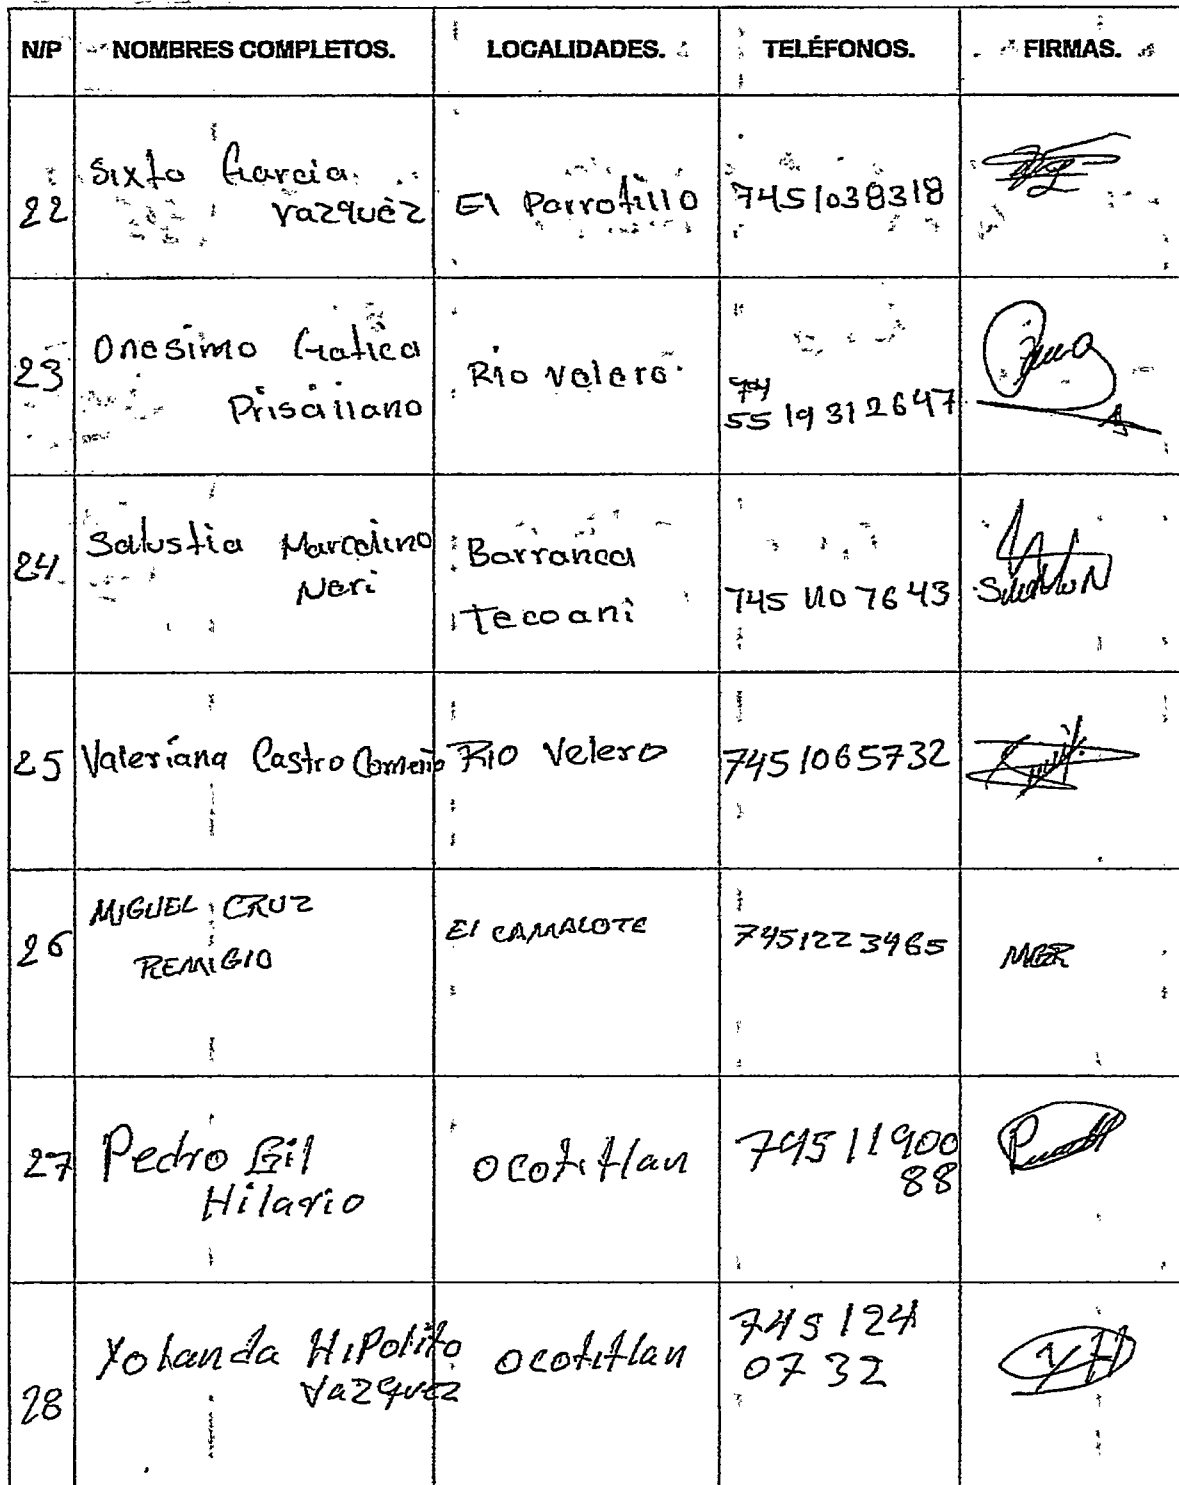 N/P NOMBRES COMPLETOS. LOCALIDADES. TELÉFONOS. FIRMAS.
22 Sixto Garcia Vazquez El Parrotillo 7451038318
23 Onesimo Gatica Prisciliano Rio Velero. 55 19 31 2647
24 Salustia Marcelino Neri Barranca Tecoani 745 110 76 43
25 Valeriana Castro Rio Velero 7451065732
26 MIGUEL CRUZ REMIGIO El CAMALOTE 7451223465
27 Pedro Gil Hilario Ocotitlan 745 11900 88
28 Yolanda HiPolito Vazquez Ocotitlan 745 124 07 32